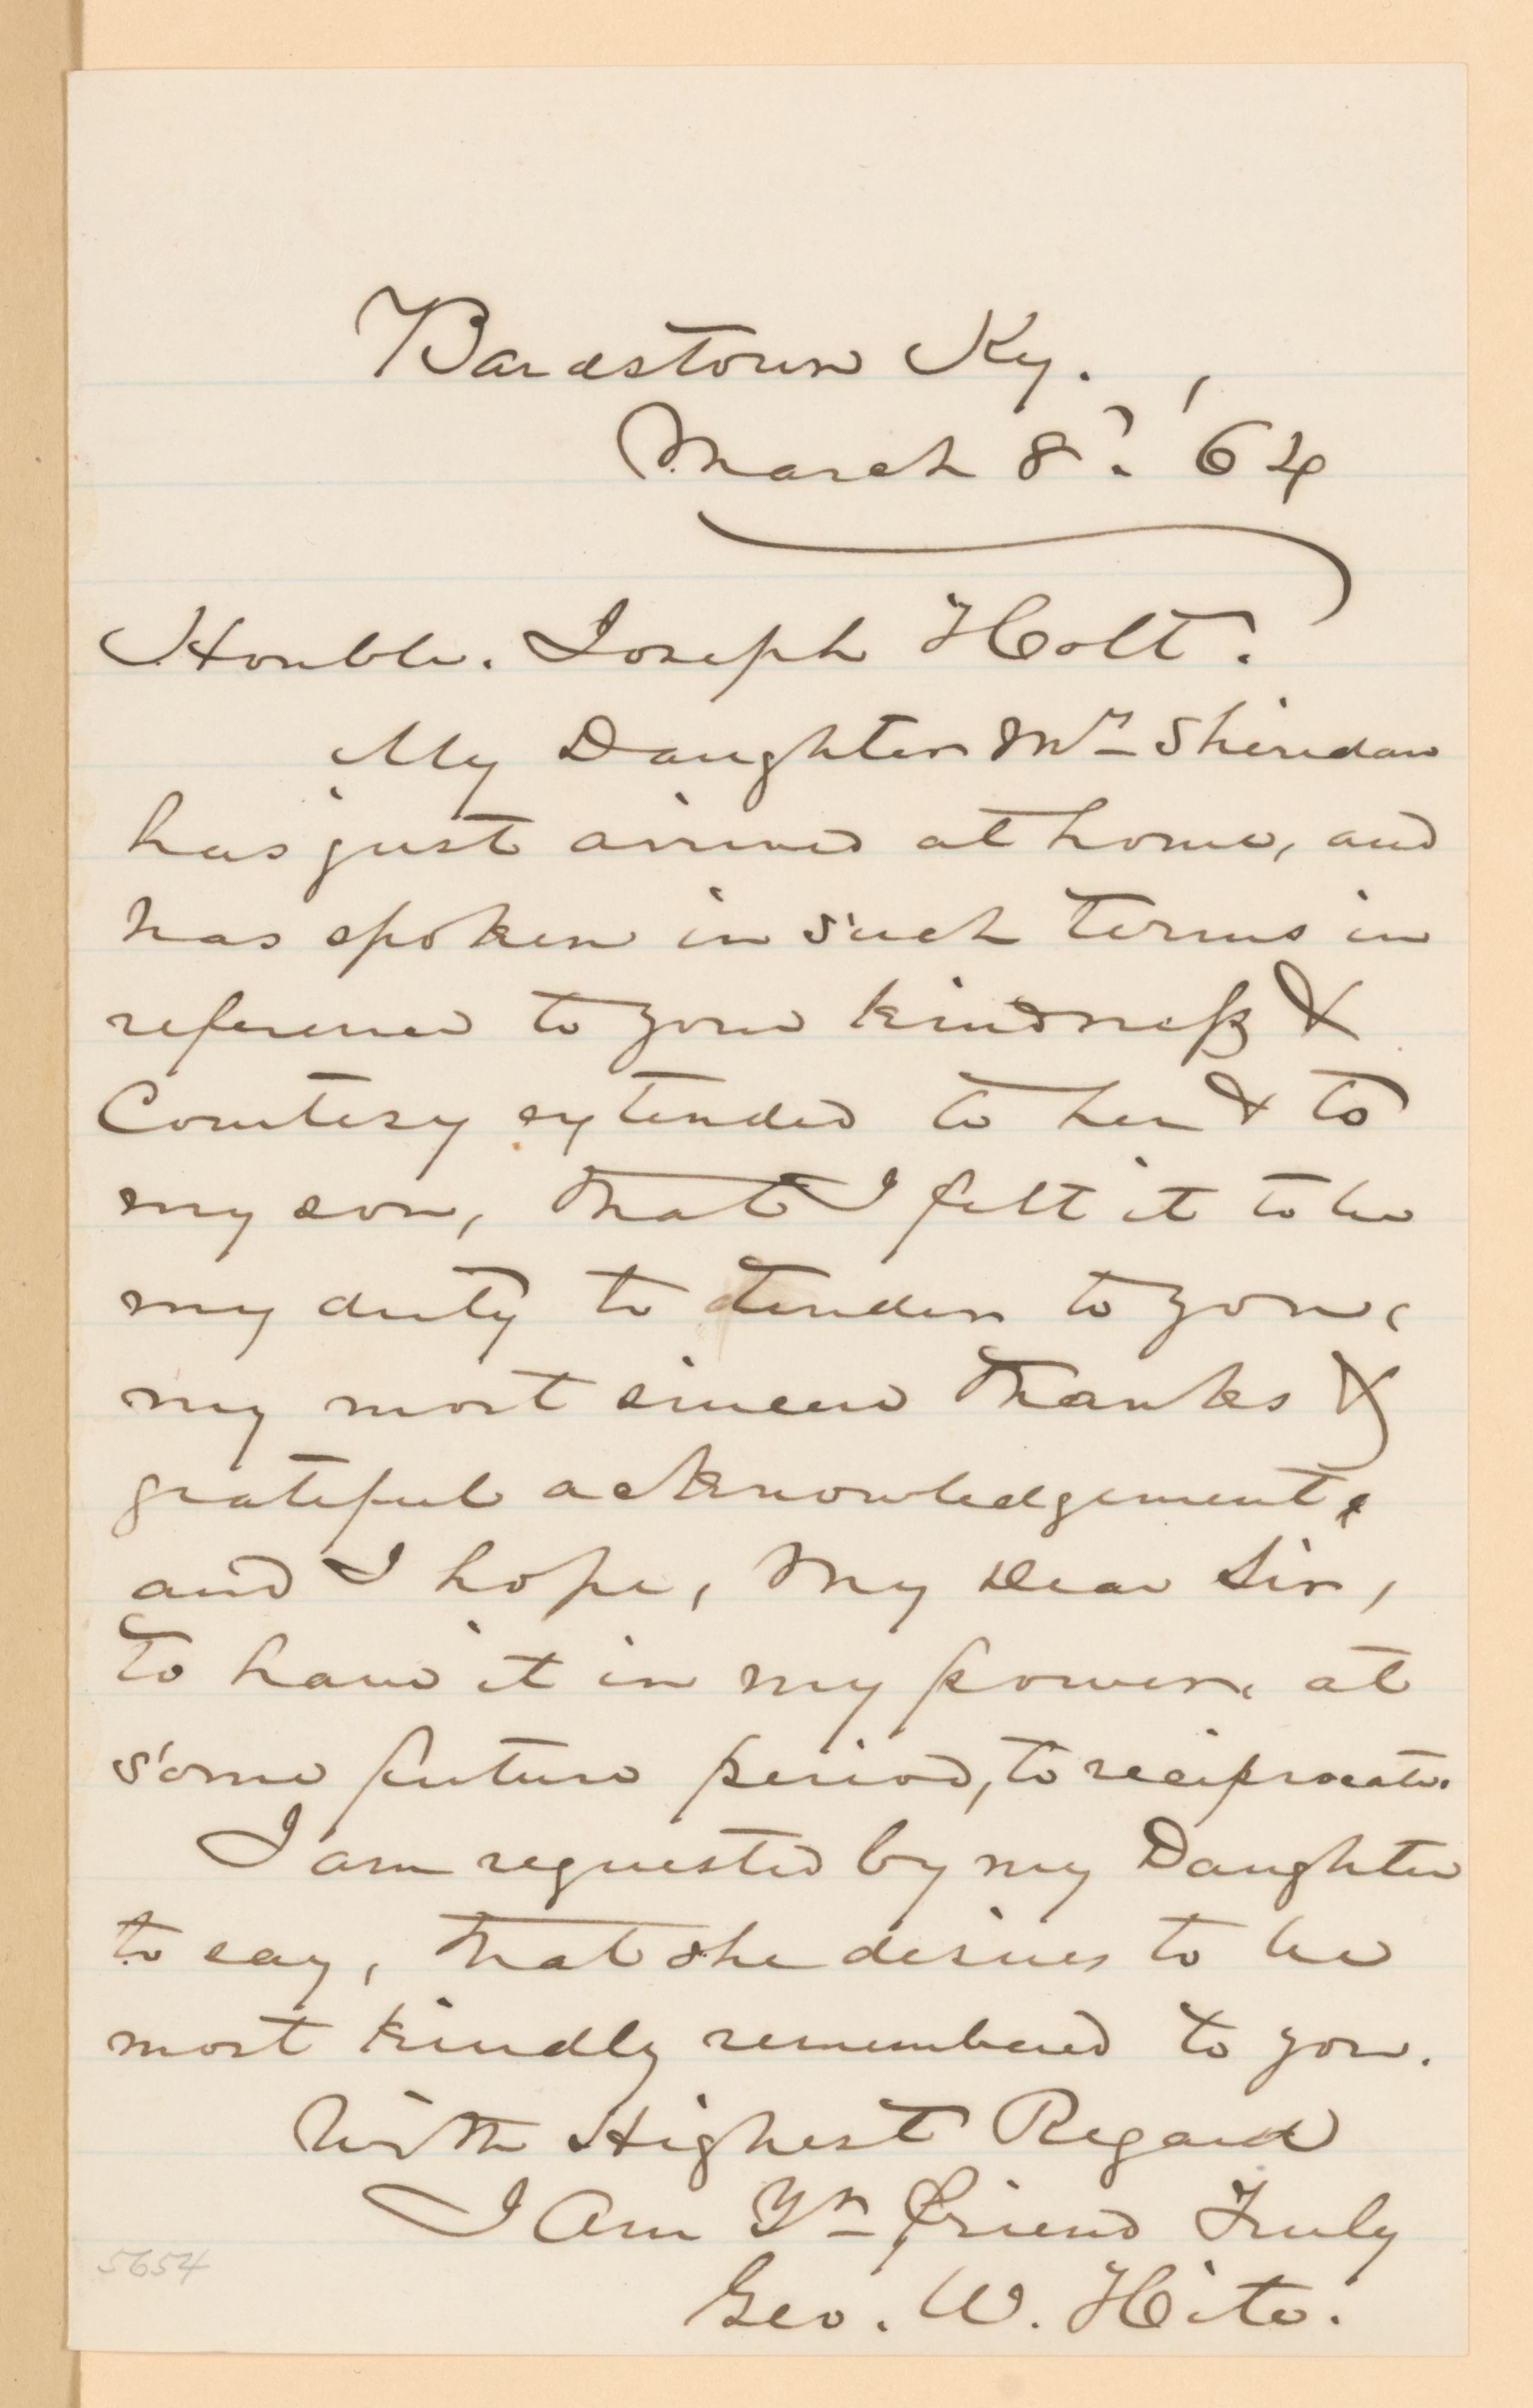 Bardstown Ky.
March 8th. '64
Honble. Joseph Holt.
My Daughter Mrs Sheridan
has just arrived at home, and
has spoken in such terms in
reference to your kindness &
Courtesy extended to her & to
my son, that I felt it to be
my duty to tender to you,
my most sincere thanks &
grateful acknowledgements
and I hope, My Dear Sir,
to have it in my power, at
some future period, to reciprocate.
I am requested by my Daughter
to say, that she desires to be
most kindly remembered to you.
With Highest Regard
I Am Yr friend Truly
Geo. W. Hite.
5654